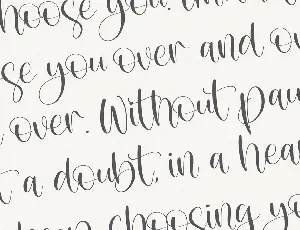 hoose you.
se you over and ov
over. Without pau
t a doubt, in a hear
keep choosing yo